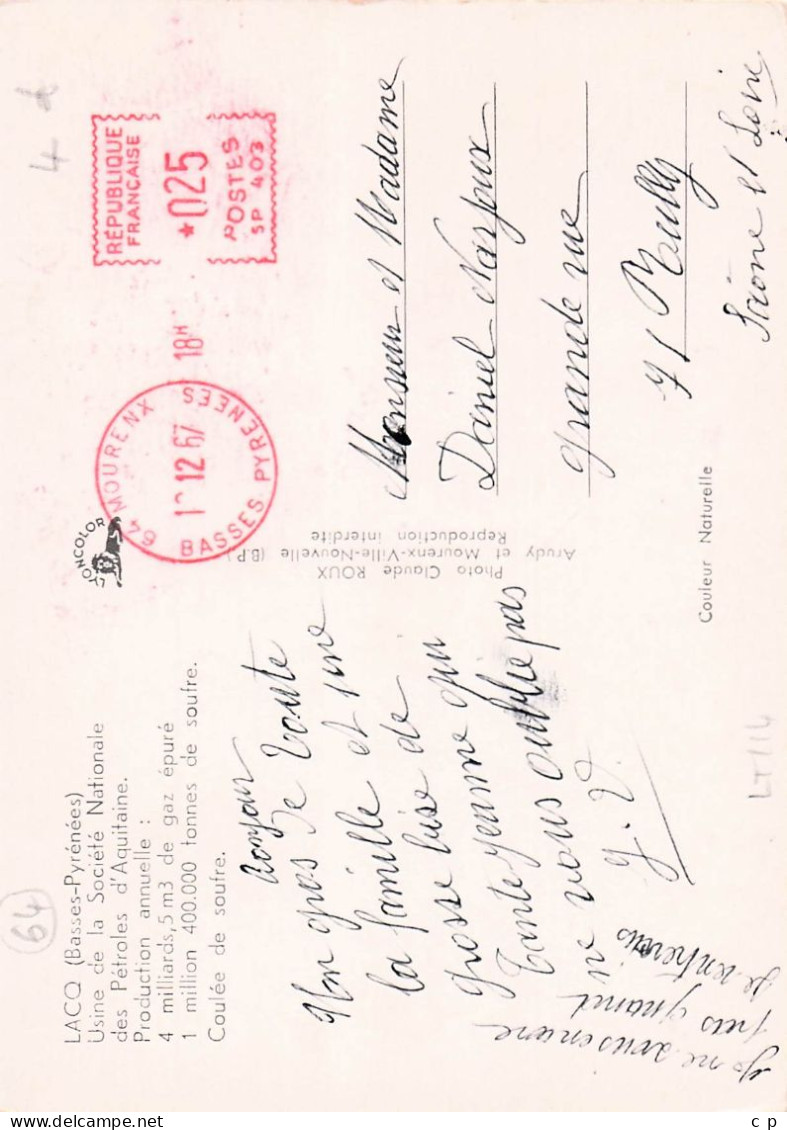 LACQ (Basses-Pyrénées)
Usine de la Société Nationale
des Pétroles d'Aquitaine.
Production annuelle :
4 milliards,5 m3 de gaz épuré
1 million 400.000 tonnes de soufre.
Coulée de soufre.
64
bonjour
Un gros de toute
la famille et une
grosse bise de
Tante Jeanne qui
ne vous oublie pas
J. V.
Je ne sais encore
pas quand
je rentrerais
LYONCOLOR
Photo Claude ROUX
Arudy et Mourenx-Ville-Nouvelle (B.P.)
Reproduction interdite
64 MOURENX
12 67
BASSES PYRENEES
18H
RÉPUBLIQUE
FRANÇAISE
*025
POSTES
SP 403
4 d
Monsieur et Madame
Daniel Narjoux
grande rue
71
Saône et Loire
Couleur Naturelle
LT114
c p